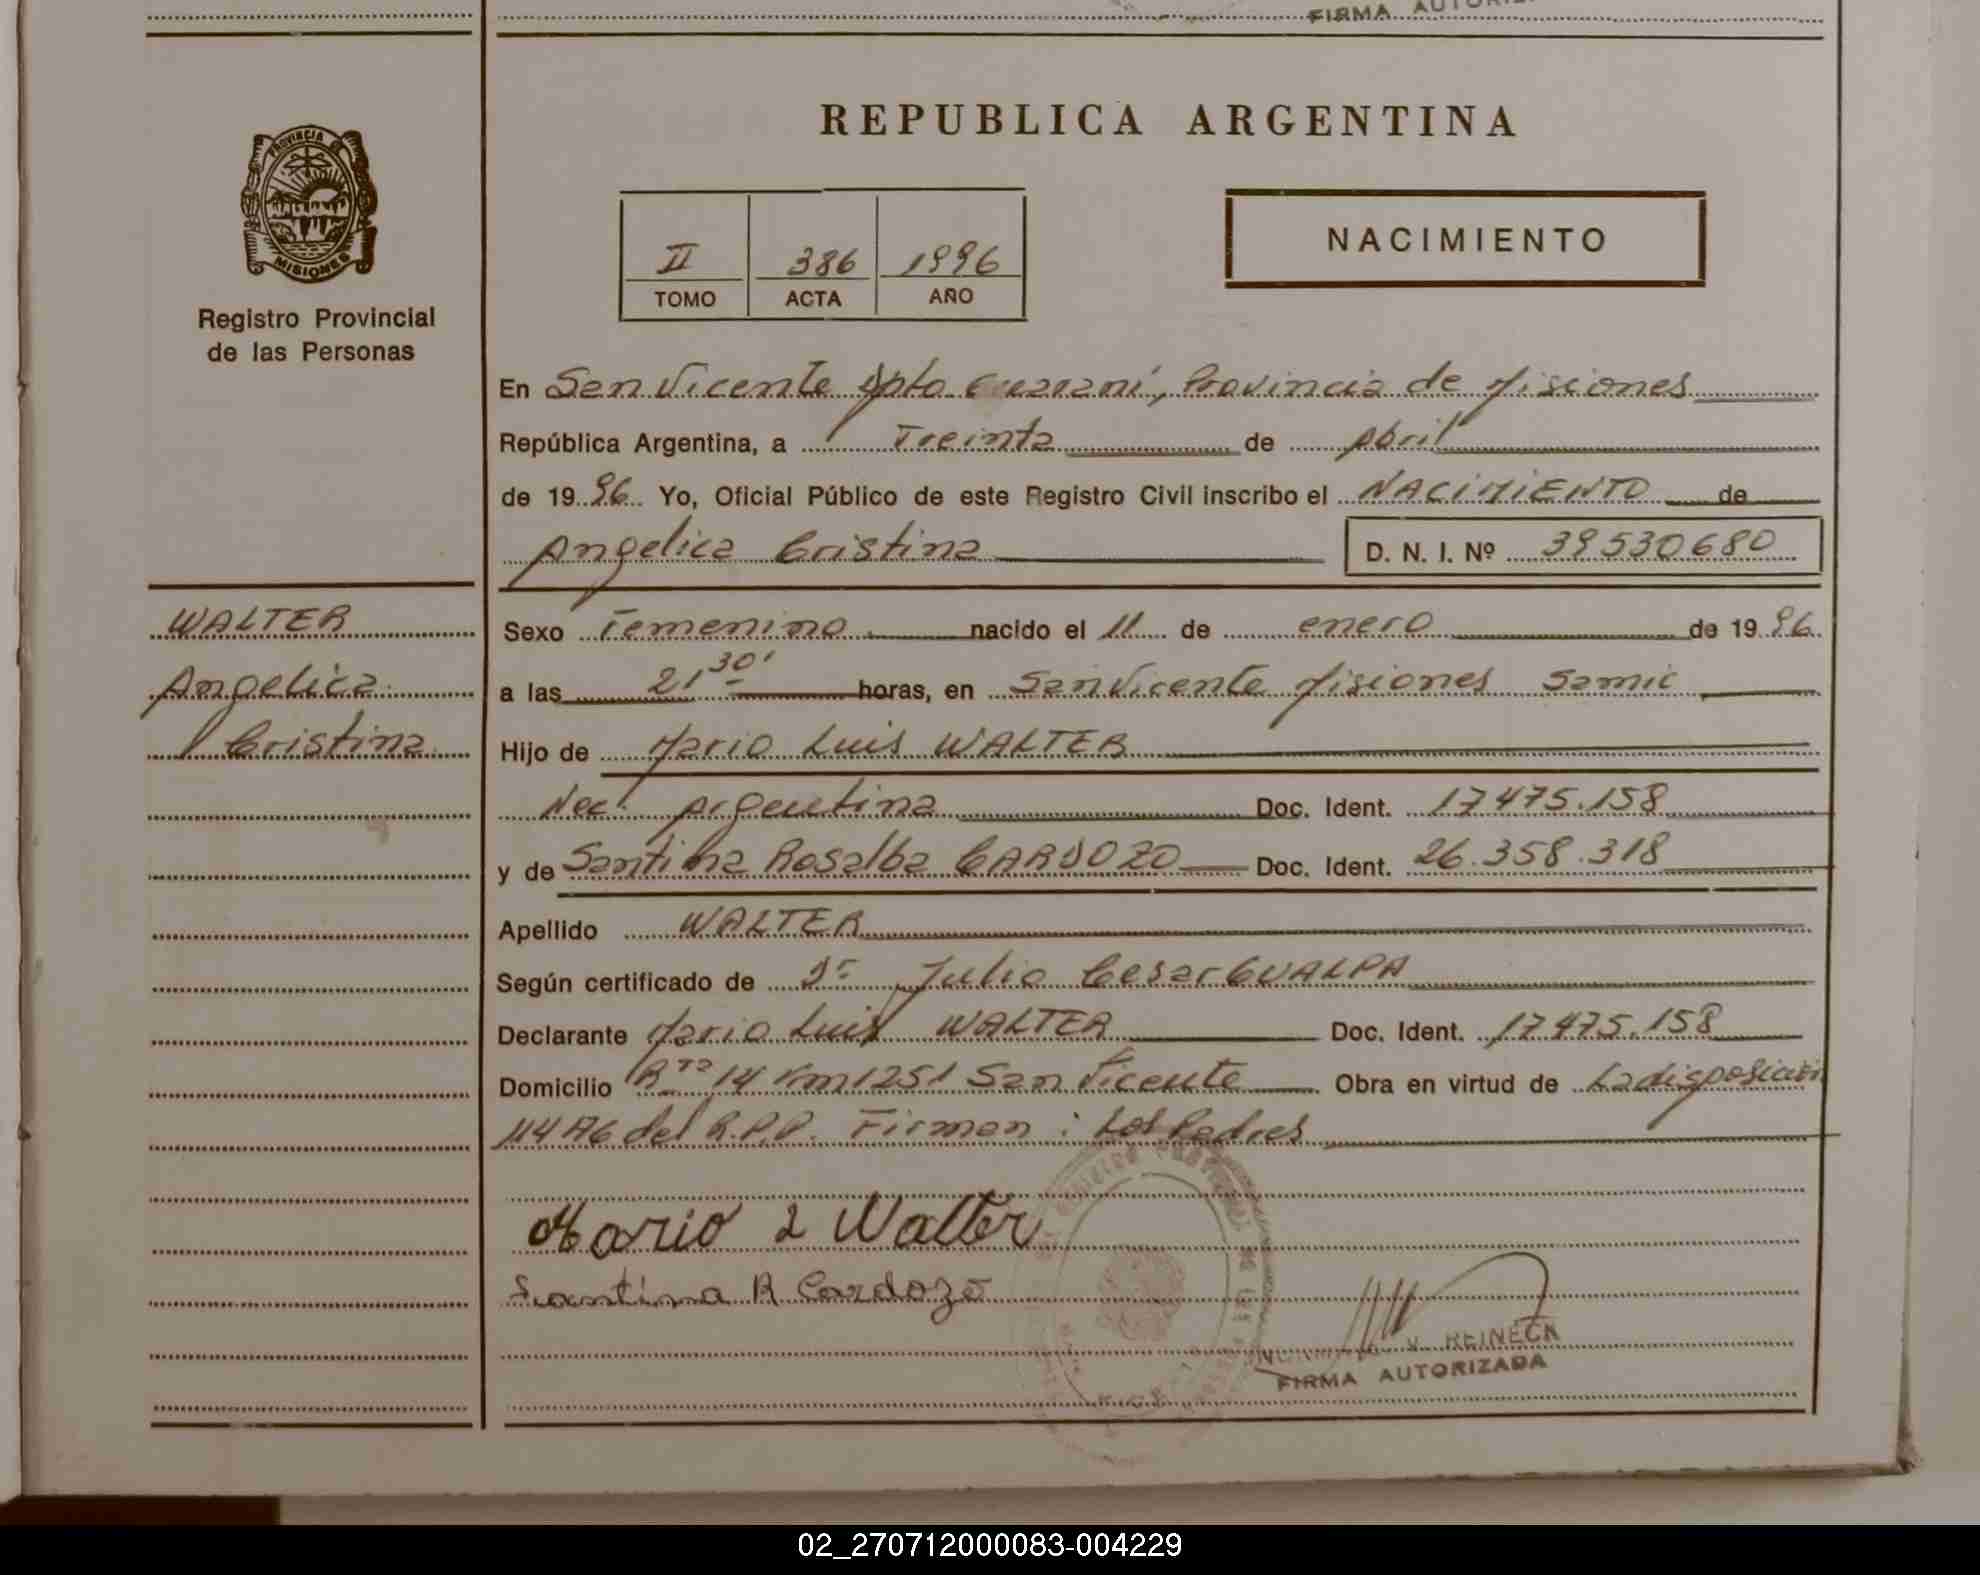 FIRMA
PROVINCIA DE
MISIONES
Registro Provincial
de las Personas
WALTER
Angelica
Cristina
REPUBLICA ARGENTINA
II 386 1996
TOMO ACTA AÑO
NACIMIENTO
En San Vicente Dpto Guarani, Provincia de Misiones
República Argentina, a Treinta de Abril
de 1996 Yo, Oficial Público de este Registro Civil inscribo el NACIMIENTO de
Angelica Cristina D. N. I. Nº 39530680
Sexo Femenino nacido el 11 de enero de 1996
a las 21 30' horas, en San Vicente Misiones Samic
Hijo de Mario Luis WALTER
Nac. Argentina Doc. Ident. 17475.158
y de Santina Rosalba CARDOZO Doc. Ident. 26.358.318
Apellido WALTER
Según certificado de Dr Julio Cesar GUALPA
Declarante Mario Luis WALTER Doc. Ident. 17475.158
Domicilio Rta 14 Km 1251 San Vicente Obra en virtud de La disposicion
114 A6 del R.P.P. Firman: Los Padres
Mario L Walter
Santina R Cardozo
REINECK
FIRMA AUTORIZADA
02_270712000083-004229